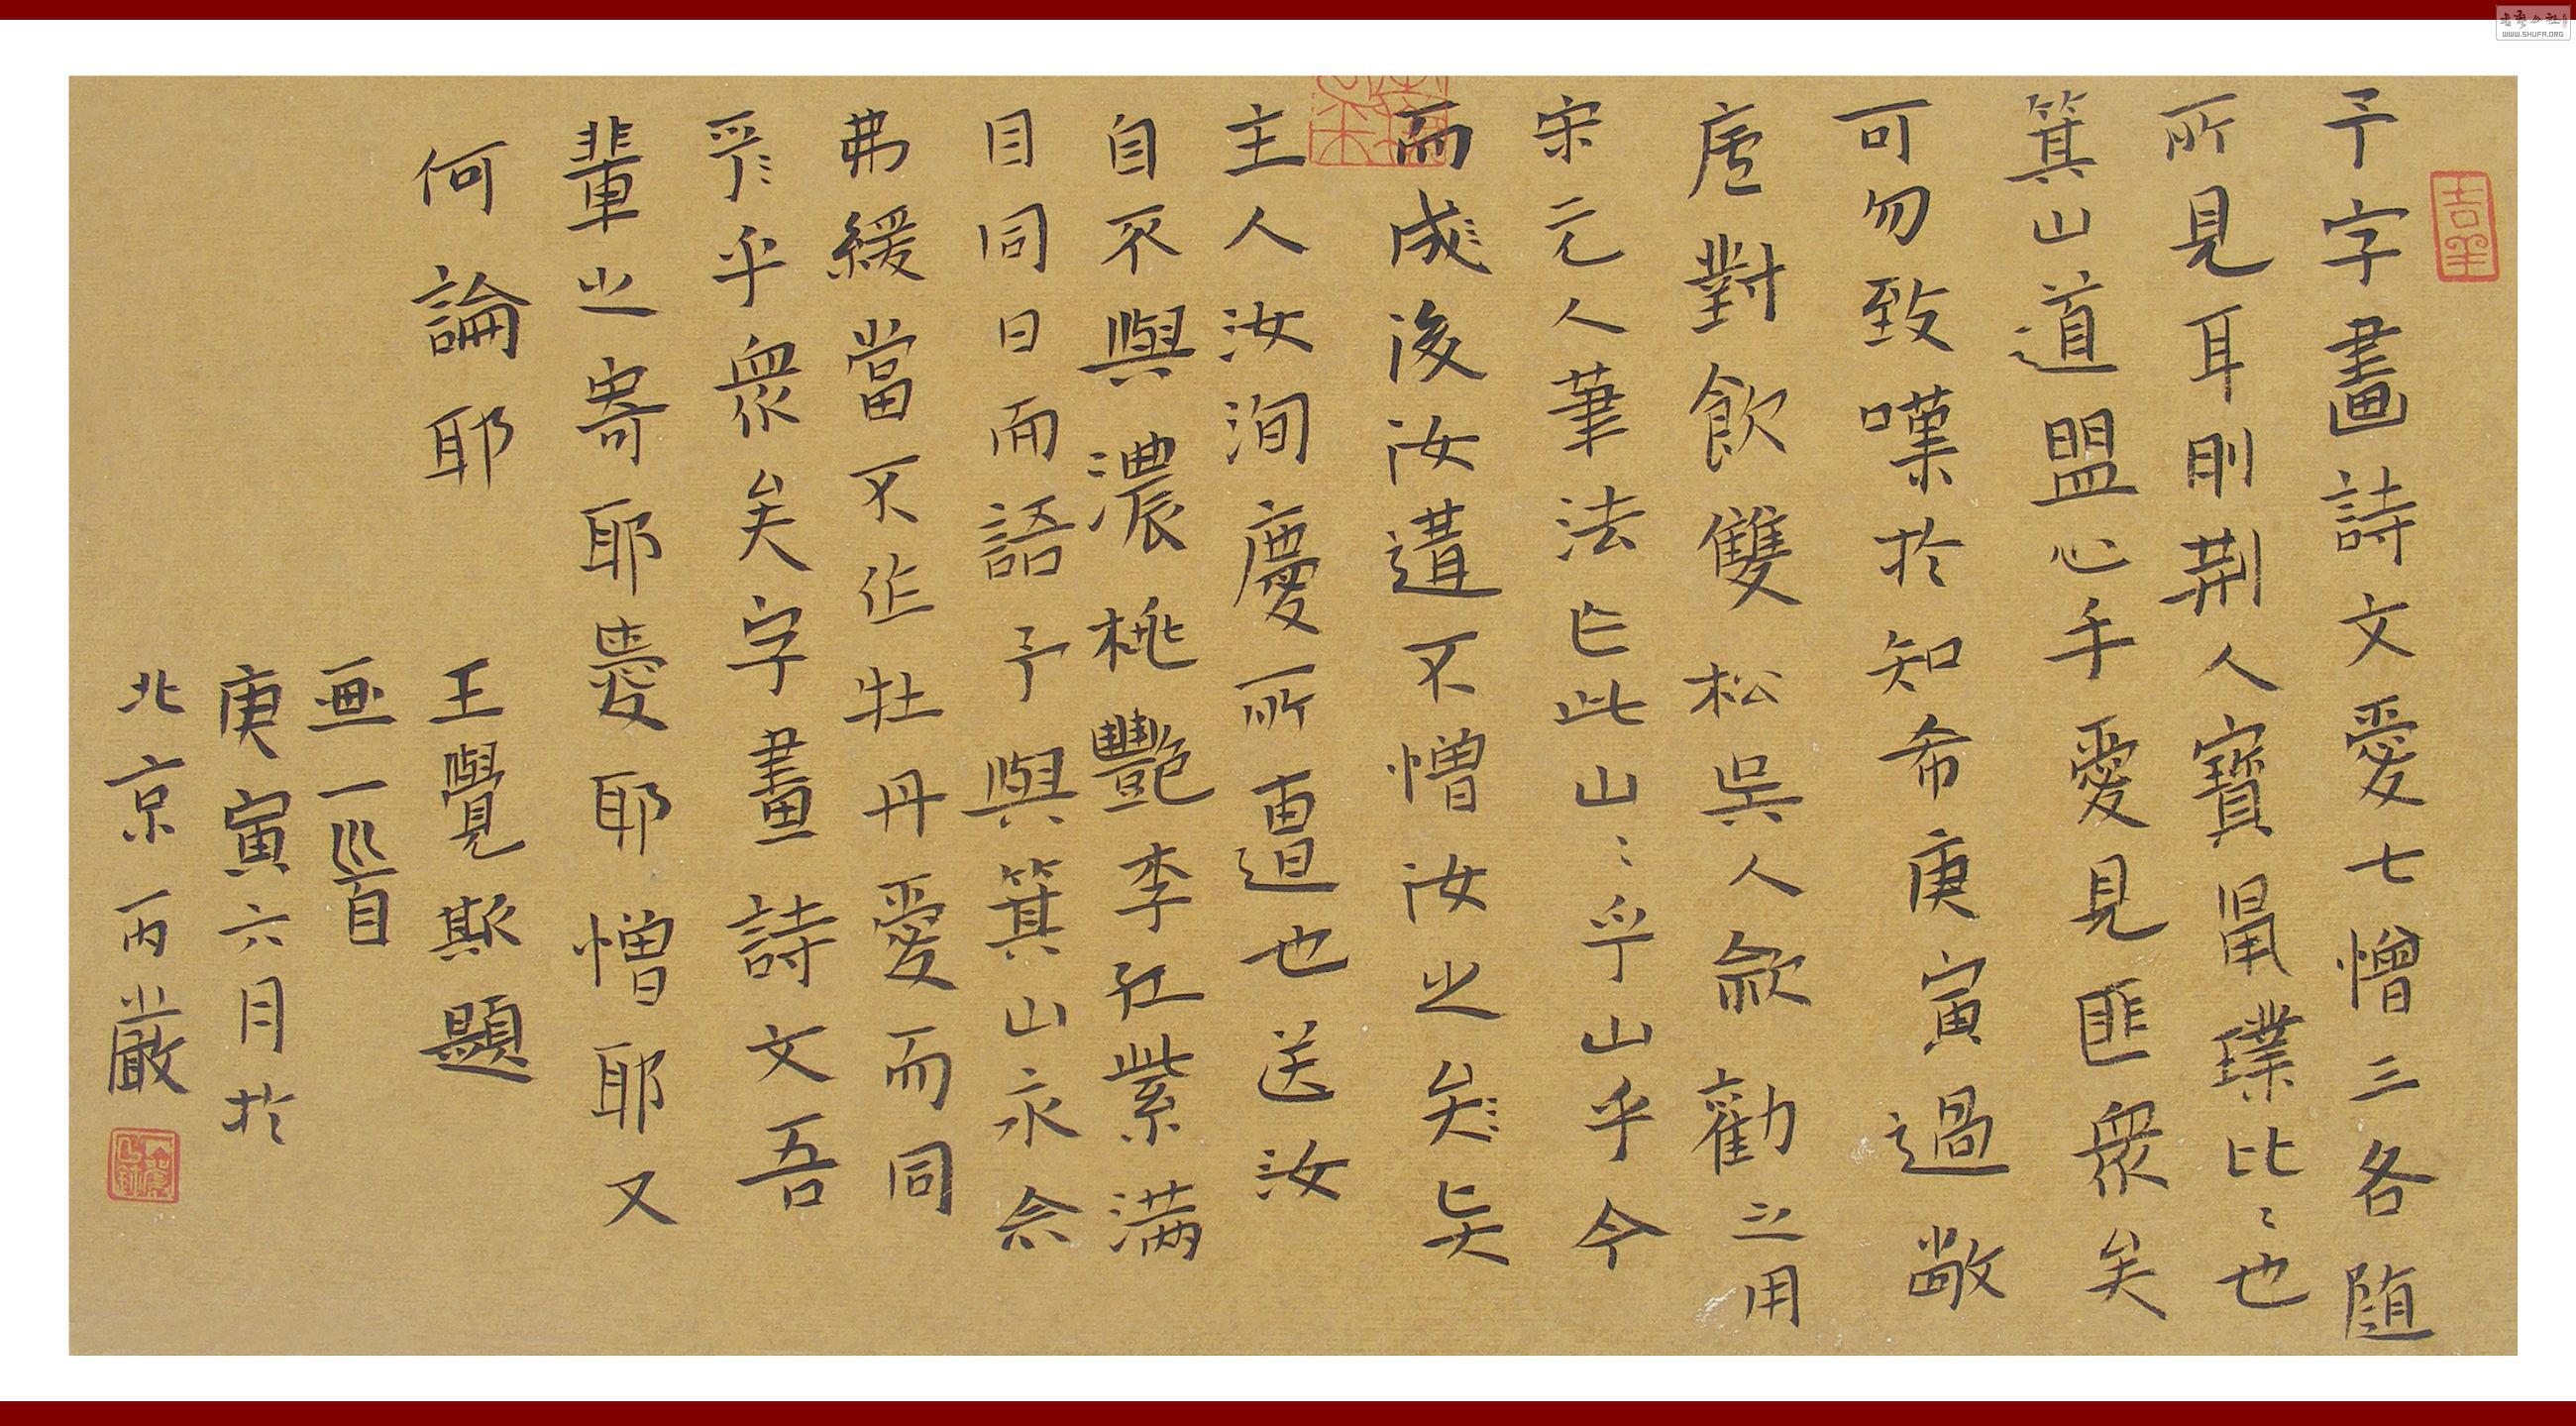 予字畫詩文愛七憎三各随
所見耳則荆人寶鼠璞比〻也
箕山道盟心手愛見匪衆矣
可勿致嘆於知希庚寅過敞
廬對飲雙松吳人歙勸立用
宋元人筆法作此山〻乎山乎今
而成〻後汝遘不憎汝之矣〻矣
主人汝洵慶所遭也送汝
自不與濃桃艷李红紫满
目同日而語予與箕山永念
弗緩當不作牡丹愛而同
乎〻乎衆矣字畫詩文吾
輩之寄耶愛耶憎耶又
何論耶
王覺斯題
画一
庚寅六月於
北京
WWW.SHUFA.ORG